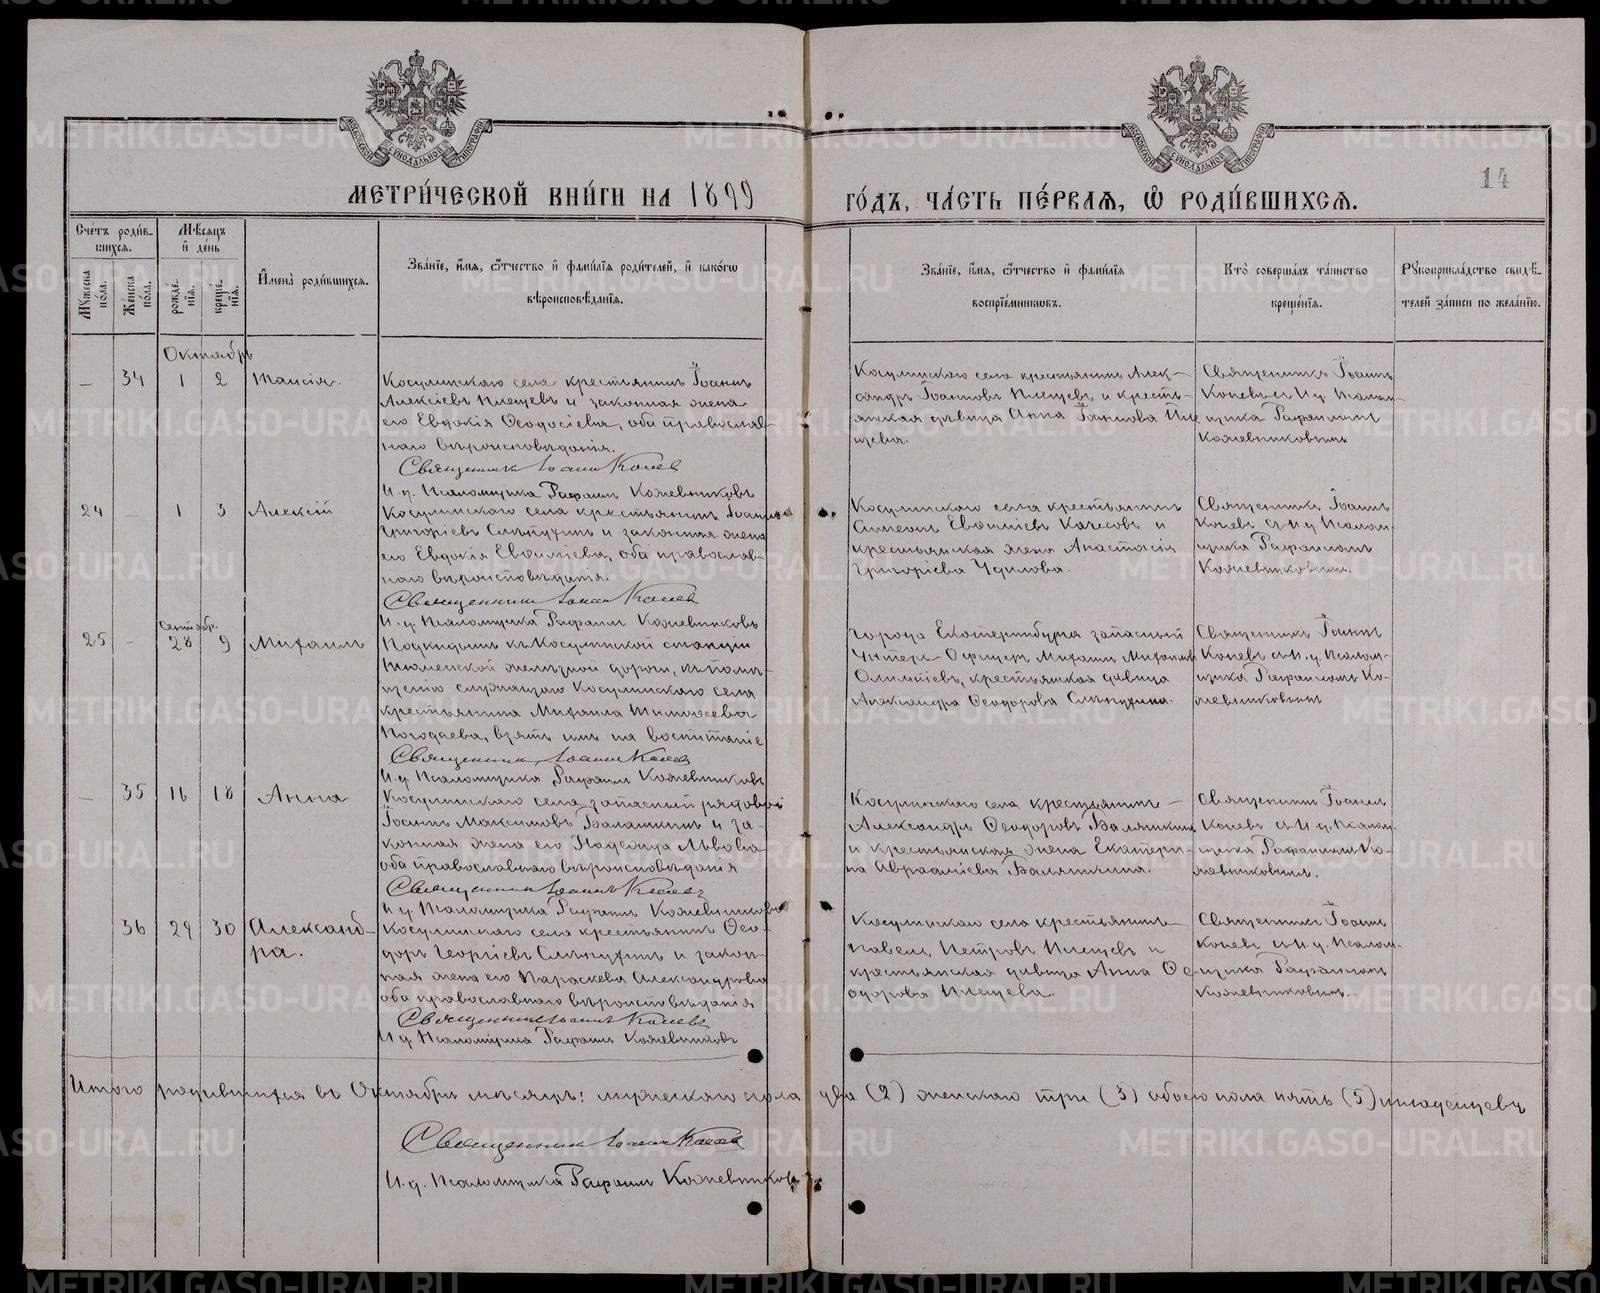 МЕТРИ́ЧЕСКОЙ КНИ́ГИ НА 1899 ГО́ДЪ, ЧА́СТЬ ПЕ́РВАЯ, Ѡ РОДИ́ВШИХСЯ.
14
Сче́тъ роди́в-
шихся.
Мѣ́сяцъ
и҆ де́нь
Му́жеска
по́ла.
Же́нска
по́ла.
рожде́-
нїя.
креще́-
нїя.
И҆мена̀ роди́вшихся.
Зва́нїе, и҆́мя, ѻ҆́тчество и҆ фами́лїя роди́телей, и҆ како́гѡ
вѣроисповѣ́данїя.
Зва́нїе, и҆́мя, ѻ҆́тчество и҆ фами́лїя
воспрїе́мниковъ.
Кто̀ соверша́лъ та́инство
креще́нїя.
Рꙋкоприкла́дство свидѣ́-
телей за́писи по жела́нїю.
Октябрь
— 34 1 2 Таисія.
Косулинскаго села крестьянинъ Іоаннъ
Алексіевъ Плещевъ и законная жена
его Евдокія Ѳеодосіева, оба православ-
наго вѣроисповѣданія.
Священникъ Іоаннъ Коневъ
И. д. Псаломщика Рафаилъ Кожевниковъ
Косулинскаго села крестьянинъ Алек-
сандръ Іоанновъ Плещевъ и кресть-
янская дѣвица Анна Іоаннова Пле
щева.
Священникъ Іоаннъ
Коневъ съ И. д. Псалом-
щика Рафаиломъ
Кожевниковымъ
24 — 1 3 Алексій
Косулинскаго села крестьянинъ Іоаннъ
Григоріевъ Слѣпухинъ и законная жена
его Евдокія Евѳиміева, оба православ-
наго вѣроисповѣданія.
Священникъ Іоаннъ Коневъ
И. д. Псаломщика Рафаилъ Кожевниковъ
Косулинскаго села крестьянинъ
Симеонъ Евѳиміевъ Качесовъ и
крестьянская жена Анастасія
Григоріева Удилова.
Священникъ Іоаннъ
Коневъ съ И. д. Псалом-
щика Рафаиломъ
Кожевниковым.
Сентябр.
25 — 28 9 Михаилъ
Подкидышъ къ Косулинской станціи
Тюменской желѣзной дороги, къ помѣ-
щенію служащаго Косулинскаго села
крестьянина Михаила Тимоѳеева
Погодаева, взятъ имъ на воспитаніе
Священникъ Іоаннъ Коневъ
И. д. Псаломщика Рафаилъ Кожевниковъ
Города Екатеринбурга запасный
Унтеръ-Офицеръ Михаилъ Михаиловъ
крестьянская дѣвица
Александра Ѳеодорова Слѣпухина.
Священникъ Іоаннъ
Коневъ съ И. д. Псалом-
щика Рафаиломъ Ко-
жевниковымъ
— 35 16 18 Анна
Косулинскаго села запасный рядовой
Іоаннъ Максимовъ Балашкинъ и за-
конная жена его Надежда Львова
оба православнаго вѣроисповѣданія
Священникъ Іоаннъ Коневъ
И. д. Псаломщика Рафаилъ Кожевниковъ
Косулинскаго села крестьянинъ —
Александръ Ѳеодоровъ Балашкинъ
и крестьянская жена Екатери-
на Авраміева Балашкина.
Священникъ Іоаннъ
Коневъ съ И. д. Псалом-
щика Рафаиломъ Ко-
жевниковым.
36 29 30 Александ-
ра.
Косулинскаго села крестьянинъ Ѳео-
доръ Георгіевъ Слѣпухинъ и закон-
ная жена его Параскева Александрова
оба православнаго вѣроисповѣданія
Священникъ Іоаннъ Коневъ
И. д. Псаломщика Рафаилъ Кожевниковъ
Косулинскаго села крестьянинъ
Павелъ Петровъ Плещевъ и
крестьянская дѣвица Анна Ѳе-
одорова Плещева.
Священникъ Іоаннъ
Коневъ съ И. д. Псалом-
щика Рафаиломъ
Кожевниковым.
Итого родившихся въ Октябрѣ мѣсяцѣ: мужескаго пола два (2) женскаго три (3) обоего пола пять (5) младенцевъ
Священникъ Іоаннъ Коневъ
И. д. Псаломщика Рафаилъ Кожевниковъ
METRIKI.GASO-URAL.RU